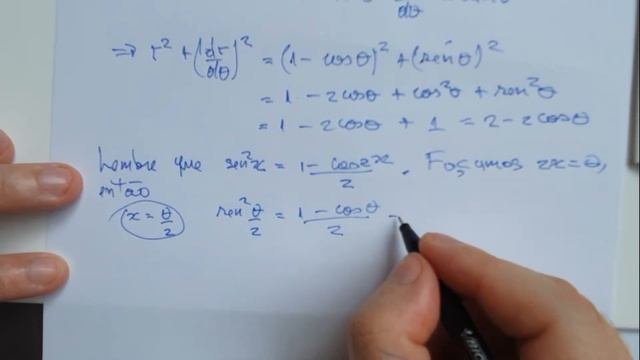 dθ
⇒ r² + (dr/dθ)² = (1 - cosθ)² + (senθ)²
= 1 - 2cosθ + cos²θ + sen²θ
= 1 - 2cosθ + 1 = 2 - 2cosθ
Lembre que sen²x = 1 - cos2x / 2 . Façamos 2x = θ,
então
x = θ/2 sen² θ/2 = 1 - cosθ / 2